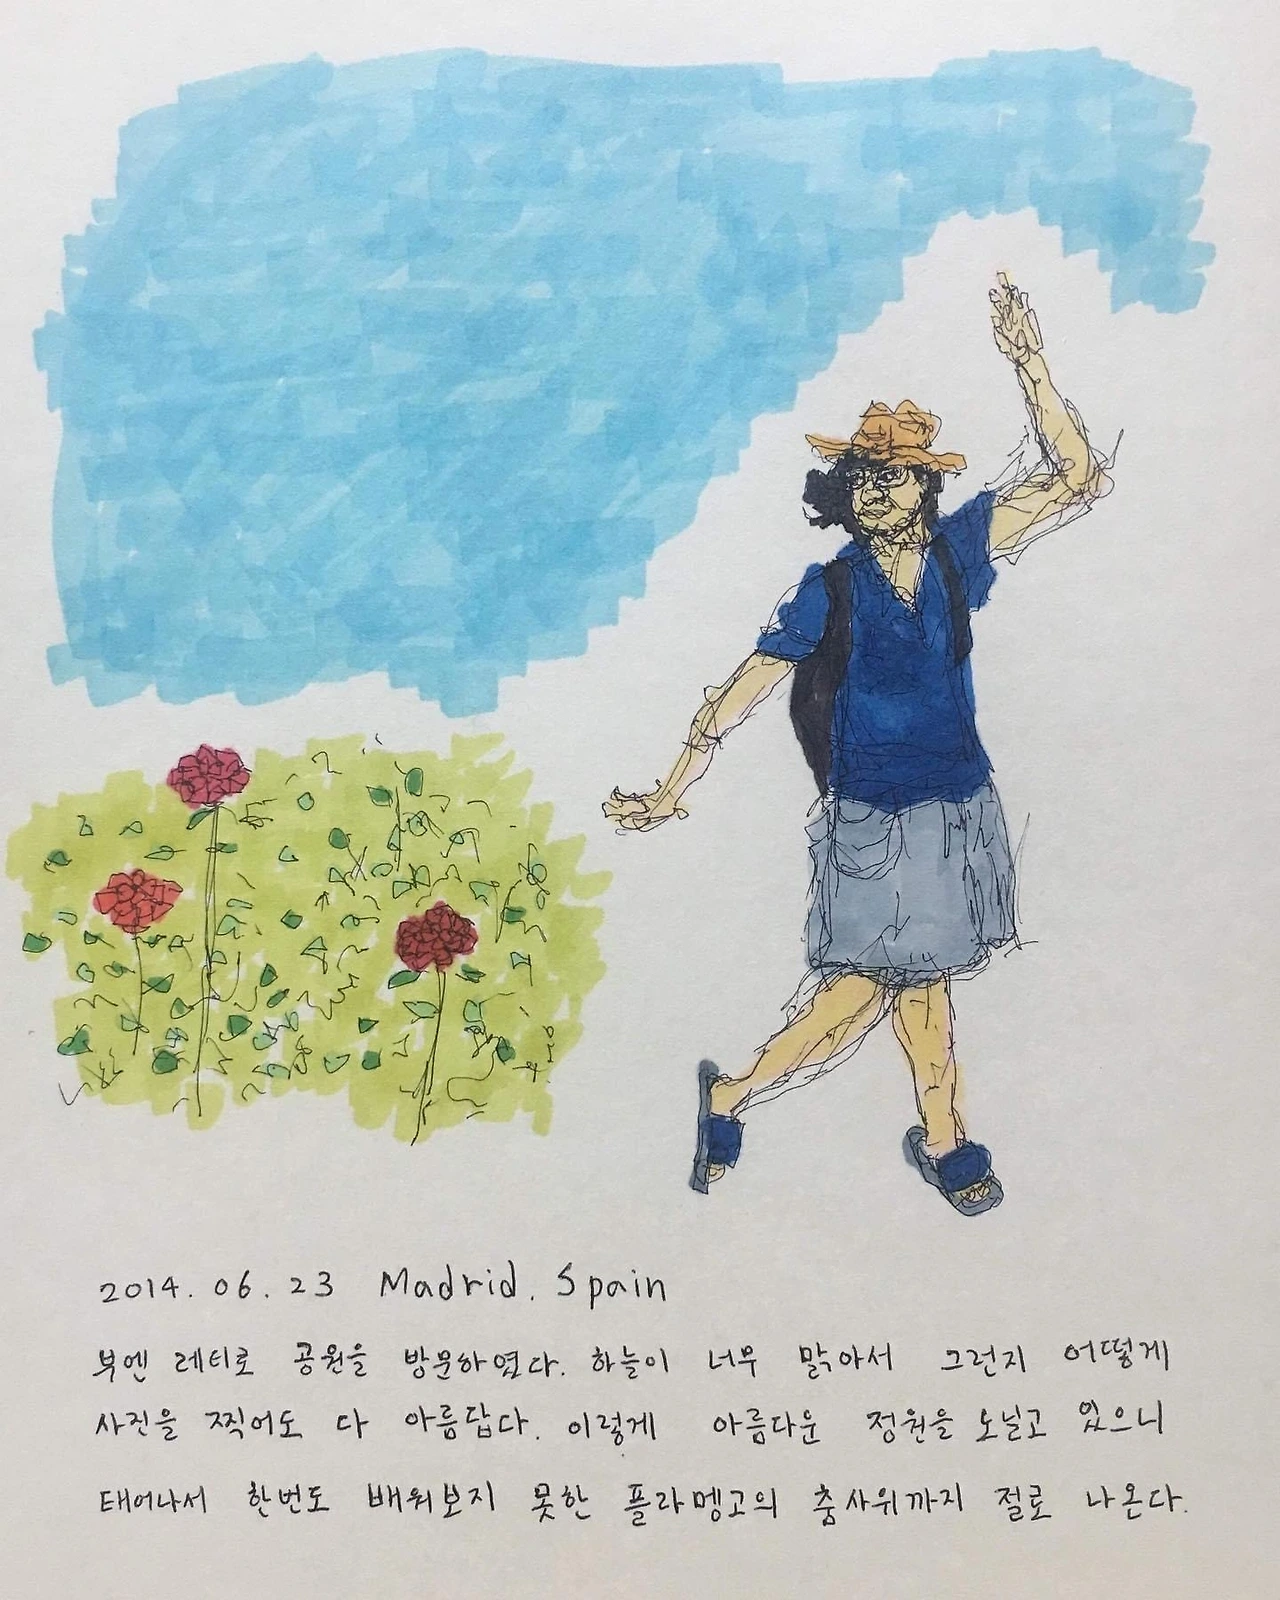 2014. 06. 23 Madrid. Spain
부엔 레티로 공원을 방문하였다. 하늘이 너무 맑아서 그런지 어떻게
사진을 찍어도 다 아름답다. 이렇게 아름다운 정원을 노닐고 있으니
태어나서 한번도 배워보지 못한 플라멩고의 춤사위까지 절로 나온다.